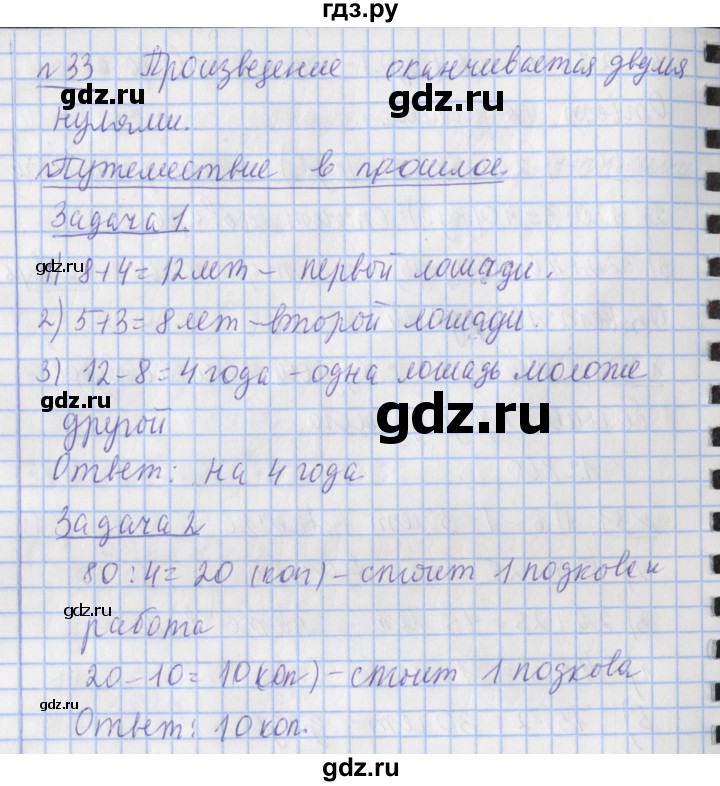 гдз.ру
№33 Произведение оканчивается двумя
gdz.ru
нулями.
gdz.ru
Путешествие в прошлое.
Задача 1.
gdz.ru
1) 8+4=12 лет – первой лошади.
2) 5+3=8 лет – второй лошади.
3) 12-8=4 года – одна лошадь моложе
gdz.ru
другой
gdz.ru
Ответ: на 4 года
Задача 2
gdz.ru
80:4=20 (коп) – стоит 1 подкова и
gdz.ru
работа
20-10=10 коп) – стоит 1 подкова
gdz.ru
Ответ: 10 коп.
gdz.ru
gdz.ru